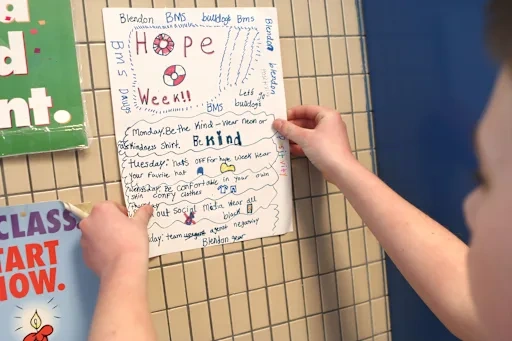 Blendon BMS bulldogs BMS
Blendon
blendon
BMS Dawgs
HOPE
Week!!
Let's
bulldogs
BMS
Monday: Be the Kind-Wear neon or
Kindness Shirt. Be Kind
Tuesday: hats OFF for hope Week Wear
your favorite hat
Wednesday: Be Comfortable in your own
skin comfy clothes
out Social Media Wear all
black
day: team against negativity
Blendon gear
d
nt.
CLASS
TART
NOW.